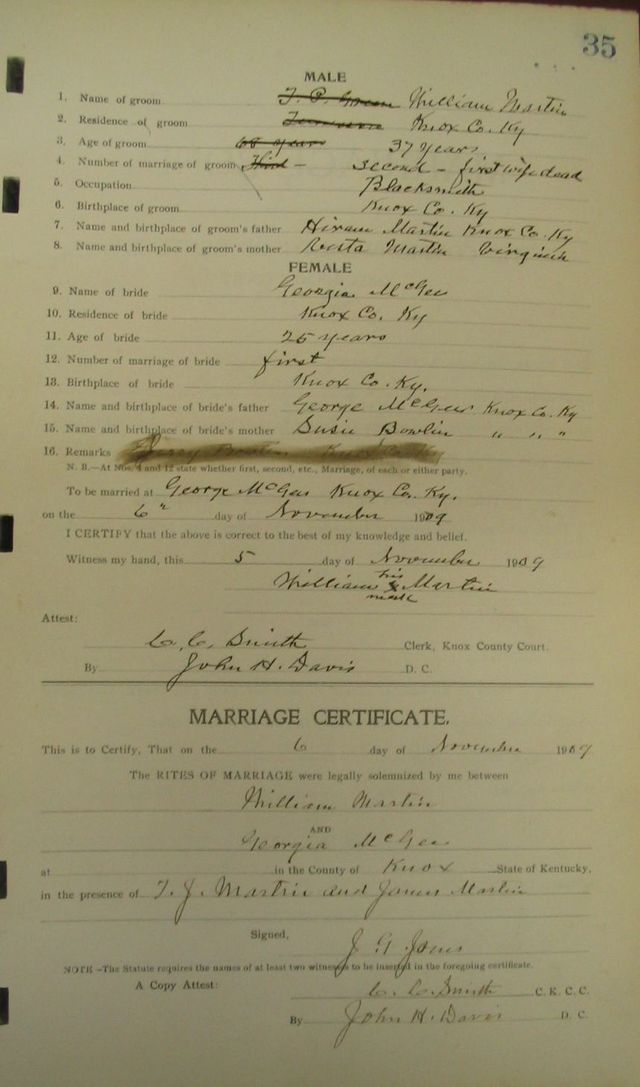 35
MALE
1. Name of groom T. P. Green William Martin
2. Residence of groom Tennessee Knox Co. Ky
3. Age of groom 68 years 37 years
4. Number of marriage of groom Third — second — first wife dead
5. Occupation Blacksmith
6. Birthplace of groom Knox Co. Ky
7. Name and birthplace of groom's father Hiram Martin Knox Co. Ky
8. Name and birthplace of groom's mother Martin Virginia
FEMALE
9. Name of bride Georgia McGee
10. Residence of bride Knox Co. Ky
11. Age of bride 25 years
12. Number of marriage of bride first
13. Birthplace of bride Knox Co. Ky.
14. Name and birthplace of bride's father George McGee Knox Co. Ky
15. Name and birthplace of bride's mother Susie Bowlin " " "
16. Remarks
N. B.—At Nos. 4 and 12 state whether first, second, etc., Marriage, of each or either party.
To be married at George McGees Knox Co. Ky.
on the 6" day of November 1909
I CERTIFY that the above is correct to the best of my knowledge and belief.
Witness my hand, this 5 day of November 1909
William his X mark Martin
Attest:
C. C. Smith Clerk, Knox County Court.
By John H. Davis D. C.
MARRIAGE CERTIFICATE.
This is to Certify, That on the 6 day of November 1909
The RITES OF MARRIAGE were legally solemnized by me between
William Martin
AND
Georgia McGee
at in the County of Knox State of Kentucky,
in the presence of T. J. Martin and James Martin
Signed, J. G. Jones
NOTE—The Statute requires the names of at least two witnesses to be inserted in the foregoing certificate.
A Copy Attest: C. C. Smith C. K. C. C.
By John H. Davis D. C.